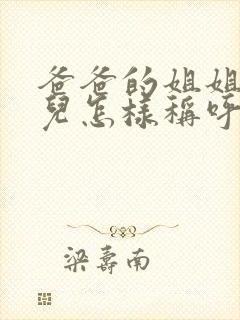 爸爸的姐姐
兒怎樣稱呼
梁壽南